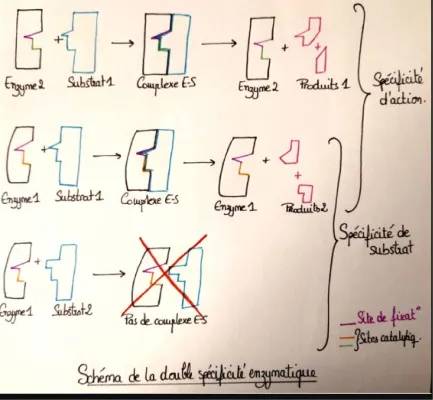 Enzyme 2 + Substrat 1 → Complexe E-S → Enzyme 2 + Produits 1
Spécificité
d'action.
Enzyme 1 + Substrat 1 → Complexe E-S → Enzyme 1 + Produits 2
Spécificité de
substrat
Enzyme 1 + Substrat 2 → Pas de complexe E-S
Site de fixat°
Sites catalytiq.
Schéma de la double spécificité enzymatique